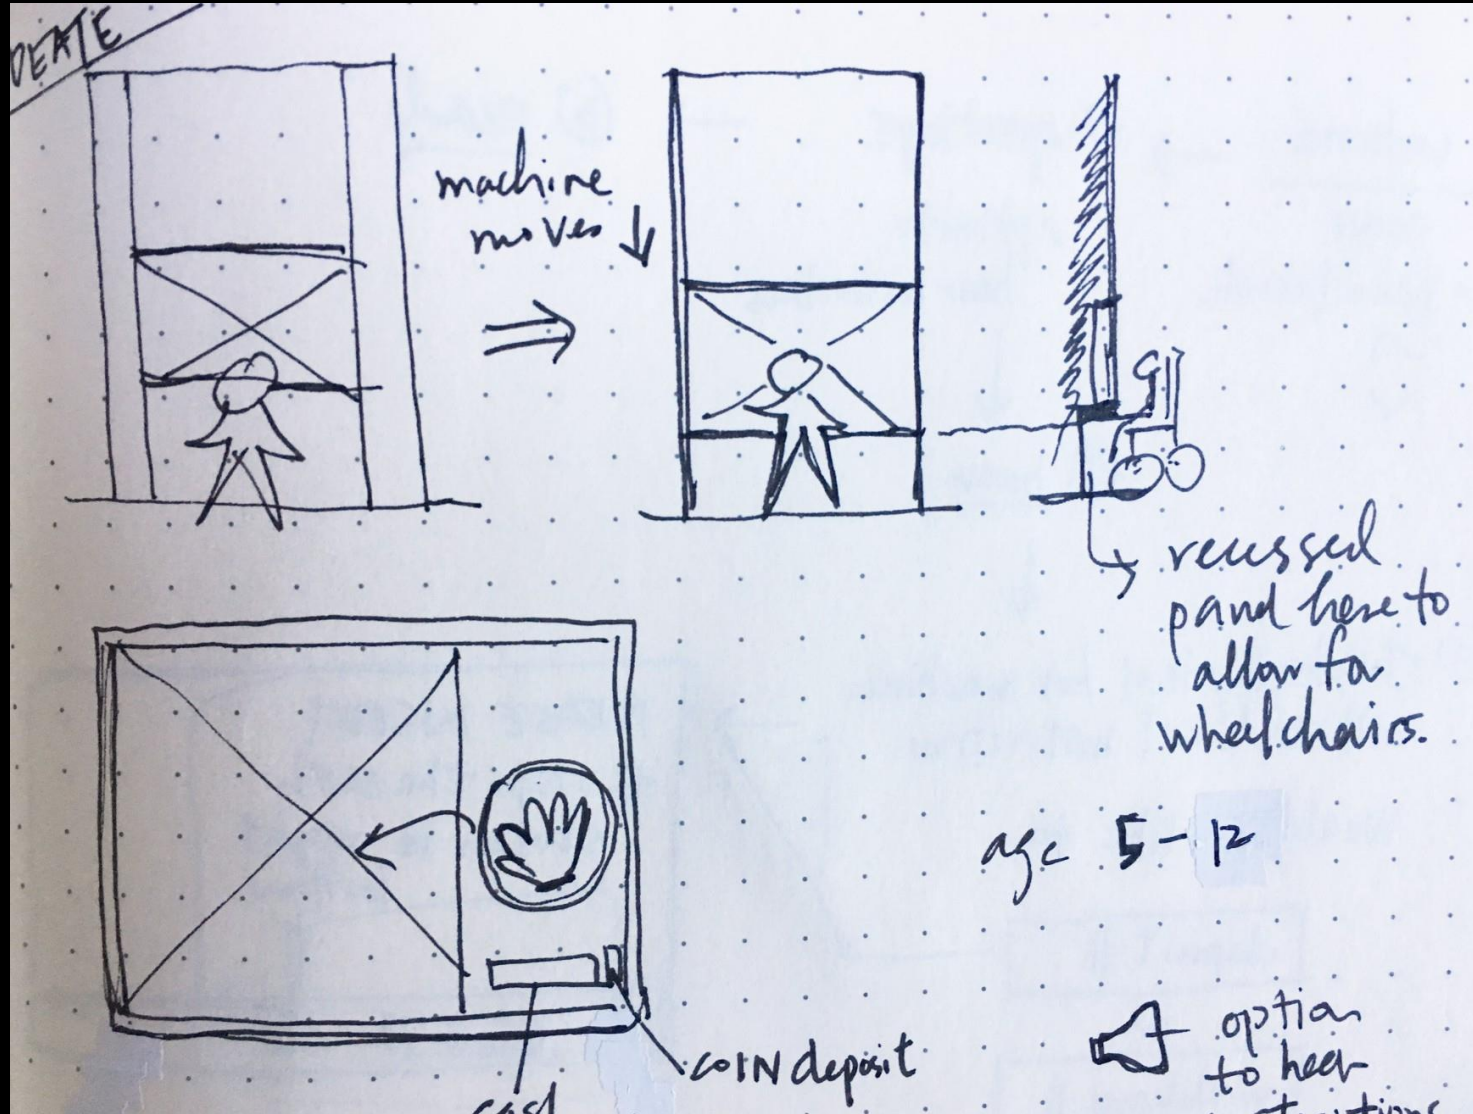 machine
moves
recessed
panel here to
allow for
wheelchairs.
age 5-12
option
to hear
COIN deposit